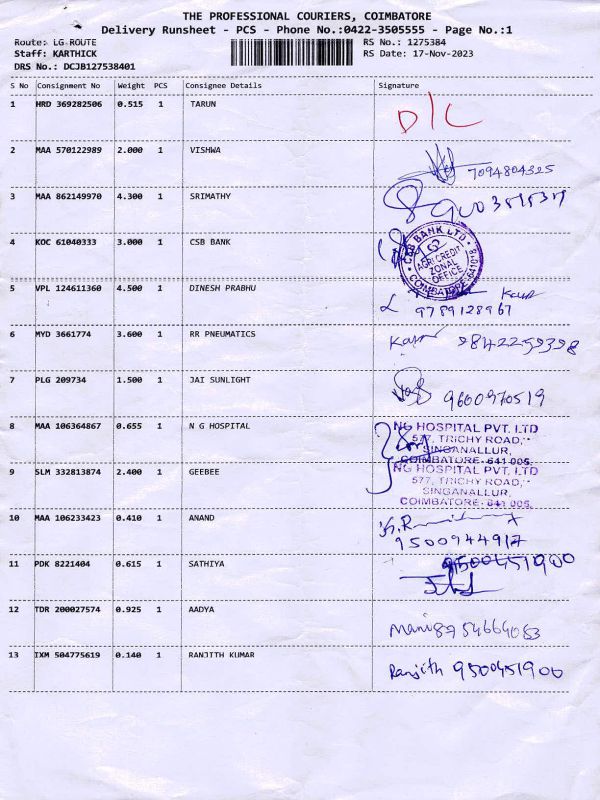 THE PROFESSIONAL COURIERS, COIMBATORE
Delivery Runsheet - PCS - Phone No.:0422-3505555 - Page No.:1
Route: LG-ROUTE RS No.: 1275384
Staff: KARTHICK RS Date: 17-Nov-2023
DRS No.: DCJB127538401
S No Consignment No Weight PCS Consignee Details Signature
1 HRD 369282506 0.515 1 TARUN D/L
2 MAA 570122989 2.000 1 VISHWA 7094804325
3 MAA 862149970 4.300 1 SRIMATHY
4 KOC 61040333 3.000 1 CSB BANK
CSB BANK LTD.
AGRI CREDIT
ZONAL
OFFICE
5 VPL 124611360 4.500 1 DINESH PRABHU
9789128967
6 MYD 3661774 3.600 1 RR PNEUMATICS 9842259398
7 PLG 209734 1.500 1 JAI SUNLIGHT 9600970519
8 MAA 106364867 0.655 1 N G HOSPITAL
NG HOSPITAL PVT. LTD
577, TRICHY ROAD,
SINGANALLUR,
COIMBATORE-641 005.
9 SLM 332813874 2.400 1 GEEBEE
NG HOSPITAL PVT. LTD
577, TRICHY ROAD,
SINGANALLUR,
COIMBATORE-641 005.
10 MAA 106233423 0.410 1 ANAND
9500944917
11 PDK 8221404 0.615 1 SATHIYA 9500451900
12 TDR 200027574 0.925 1 AADYA Mani 8754664063
13 IXM 504775619 0.140 1 RANJITH KUMAR Ranjith 9500451900